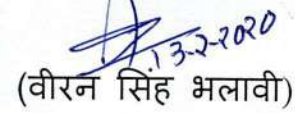 13-2-2020
(वीरन सिंह भलावी)